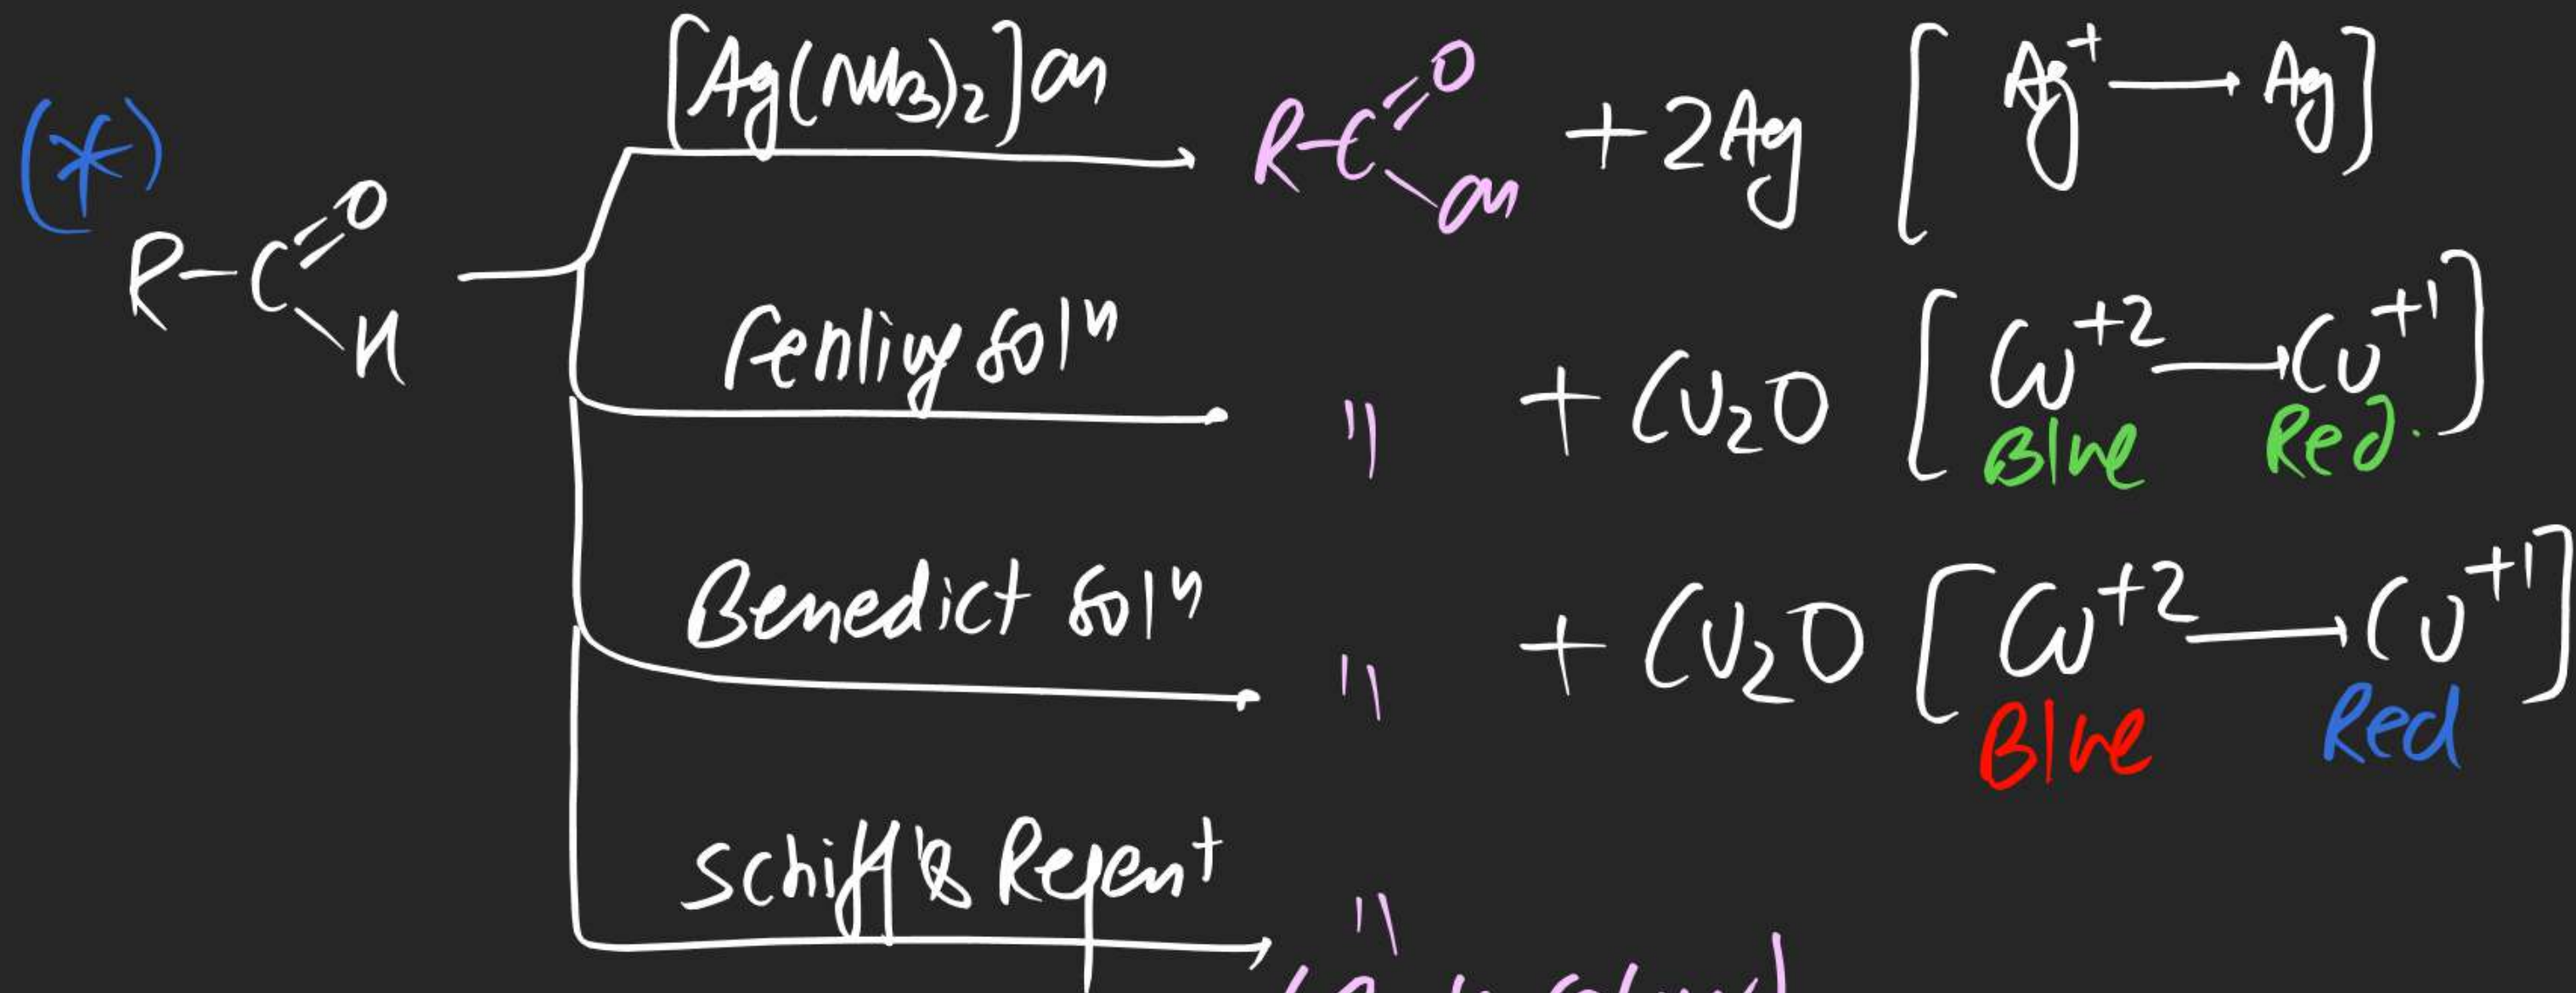 (*)
[Ag(NH3)2]OH
R-C=O-OH + 2Ag [Ag+ → Ag]
R-C=O-H
Fehling sol^n
" + Cu2O [Cu+2 → Cu+1]
Blue Red.
Benedict sol^n
" + Cu2O [Cu+2 → Cu+1]
Blue Red
Schiff's Regent
"